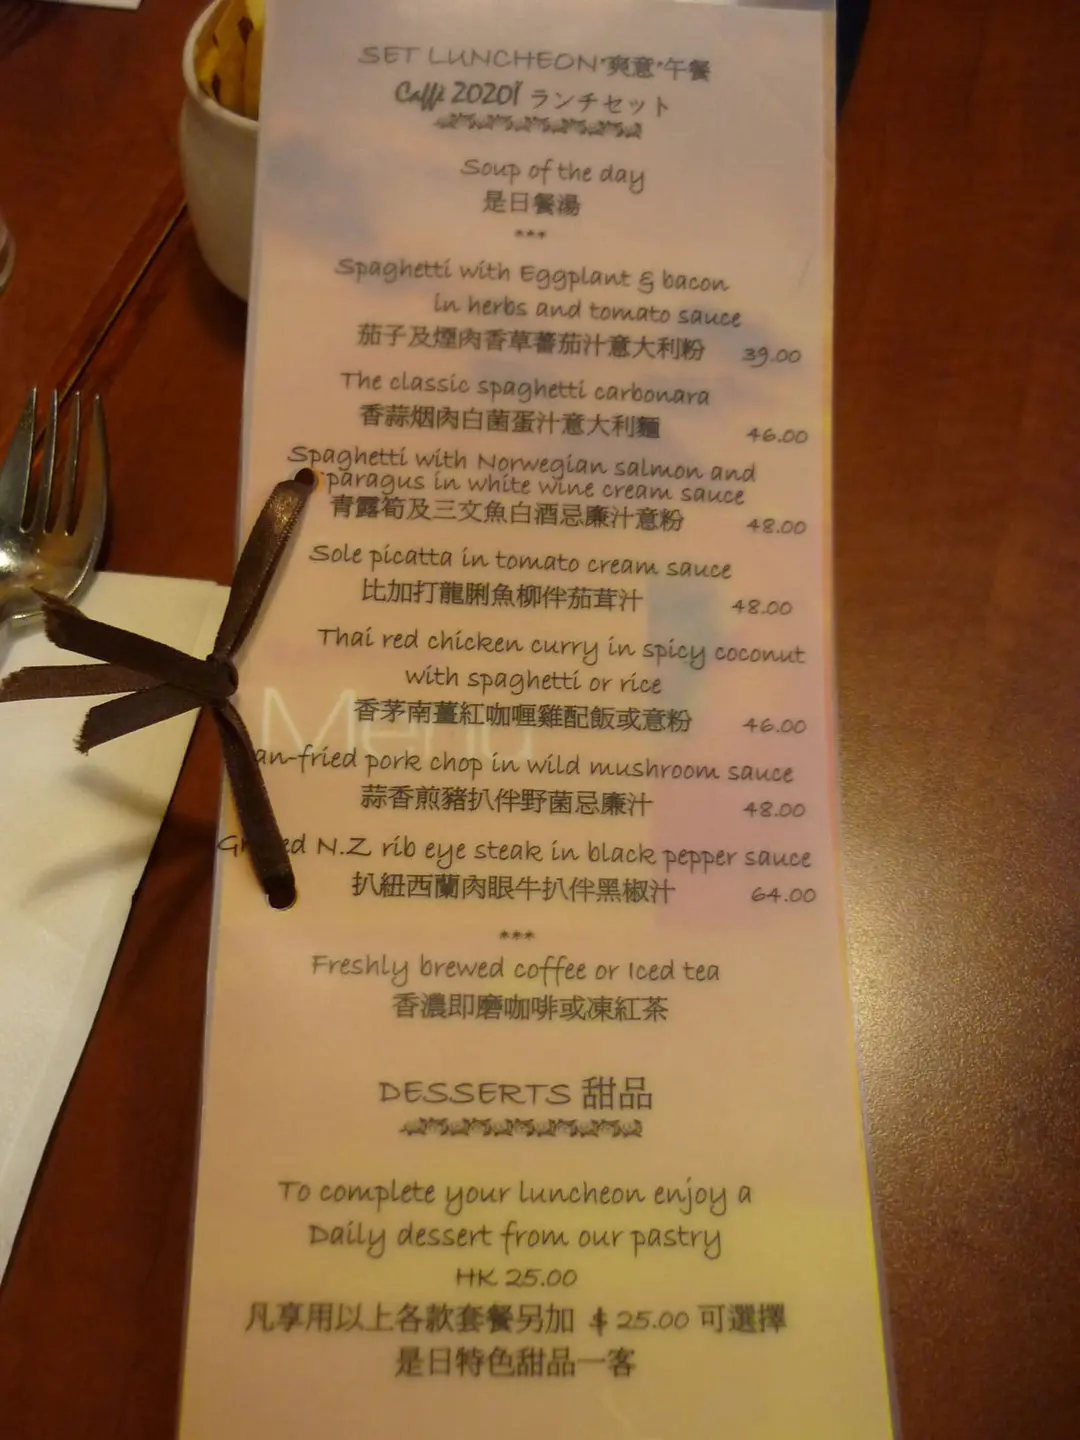 SET LUNCHEON‘爽意’午餐
Caffe 2020! ランチセット
Soup of the day
是日餐湯
***
Spaghetti with Eggplant & bacon
in herbs and tomato sauce
茄子及煙肉香草蕃茄汁意大利粉 39.00
The classic spaghetti carbonara
香蒜烟肉白菌蛋汁意大利麵 46.00
Spaghetti with Norwegian salmon and
paragus in white wine cream sauce
青露筍及三文魚白酒忌廉汁意粉 48.00
Sole picatta in tomato cream sauce
比加打龍脷魚柳伴茄茸汁 48.00
Thai red chicken curry in spicy coconut
with spaghetti or rice
香茅南薑紅咖喱雞配飯或意粉 46.00
Menu
an-fried pork chop in wild mushroom sauce
蒜香煎豬扒伴野菌忌廉汁 48.00
ed N.Z rib eye steak in black pepper sauce
扒紐西蘭肉眼牛扒伴黑椒汁 64.00
***
Freshly brewed coffee or Iced tea
香濃即磨咖啡或凍紅茶
DESSERTS 甜品
To complete your luncheon enjoy a
Daily dessert from our pastry
HK 25.00
凡享用以上各款套餐另加 $ 25.00 可選擇
是日特色甜品一客